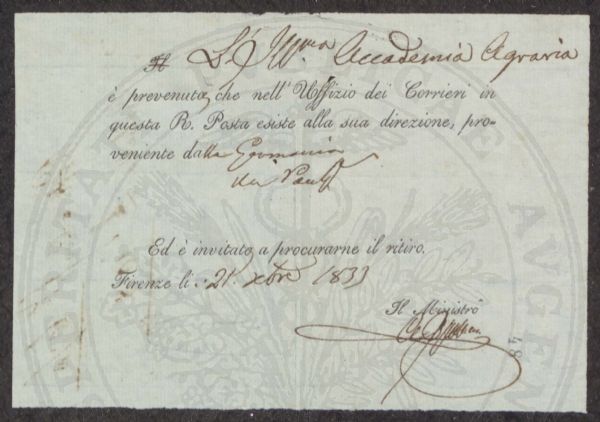 Il L'Ill.ma Accademia Agraria
è prevenuta, che nell' Uffizio dei Corrieri in
questa R. Posta esiste alla sua direzione, pro-
veniente dalla Germania
Ed è invitato a procurarne il ritiro.
Firenze li: 21. xbre 1833
Il Ministro
48
PROSPERITATI AUGEN